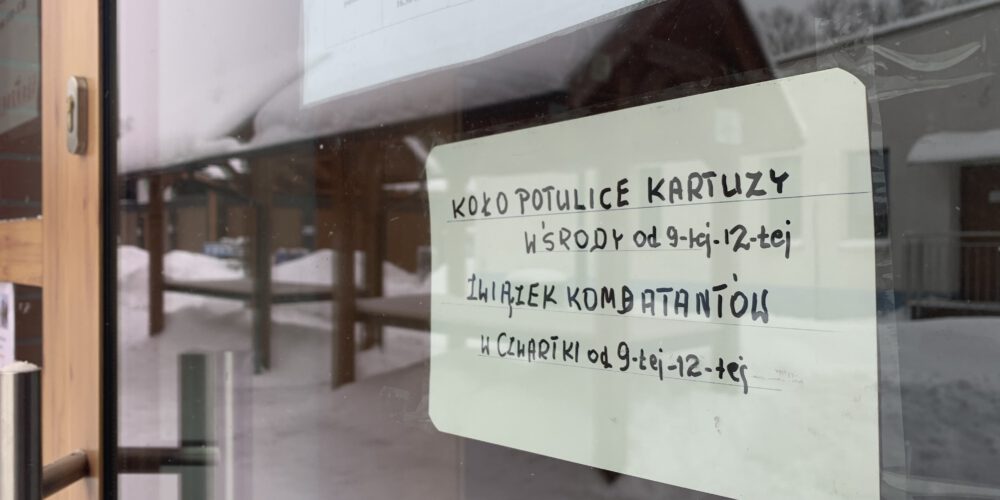 KOŁO POTULICE KARTUZY
W ŚRODY od 9-tej-12-tej
ZWIĄZEK KOMBATANTÓW
W CZWARTKI od 9-tej-12-tej